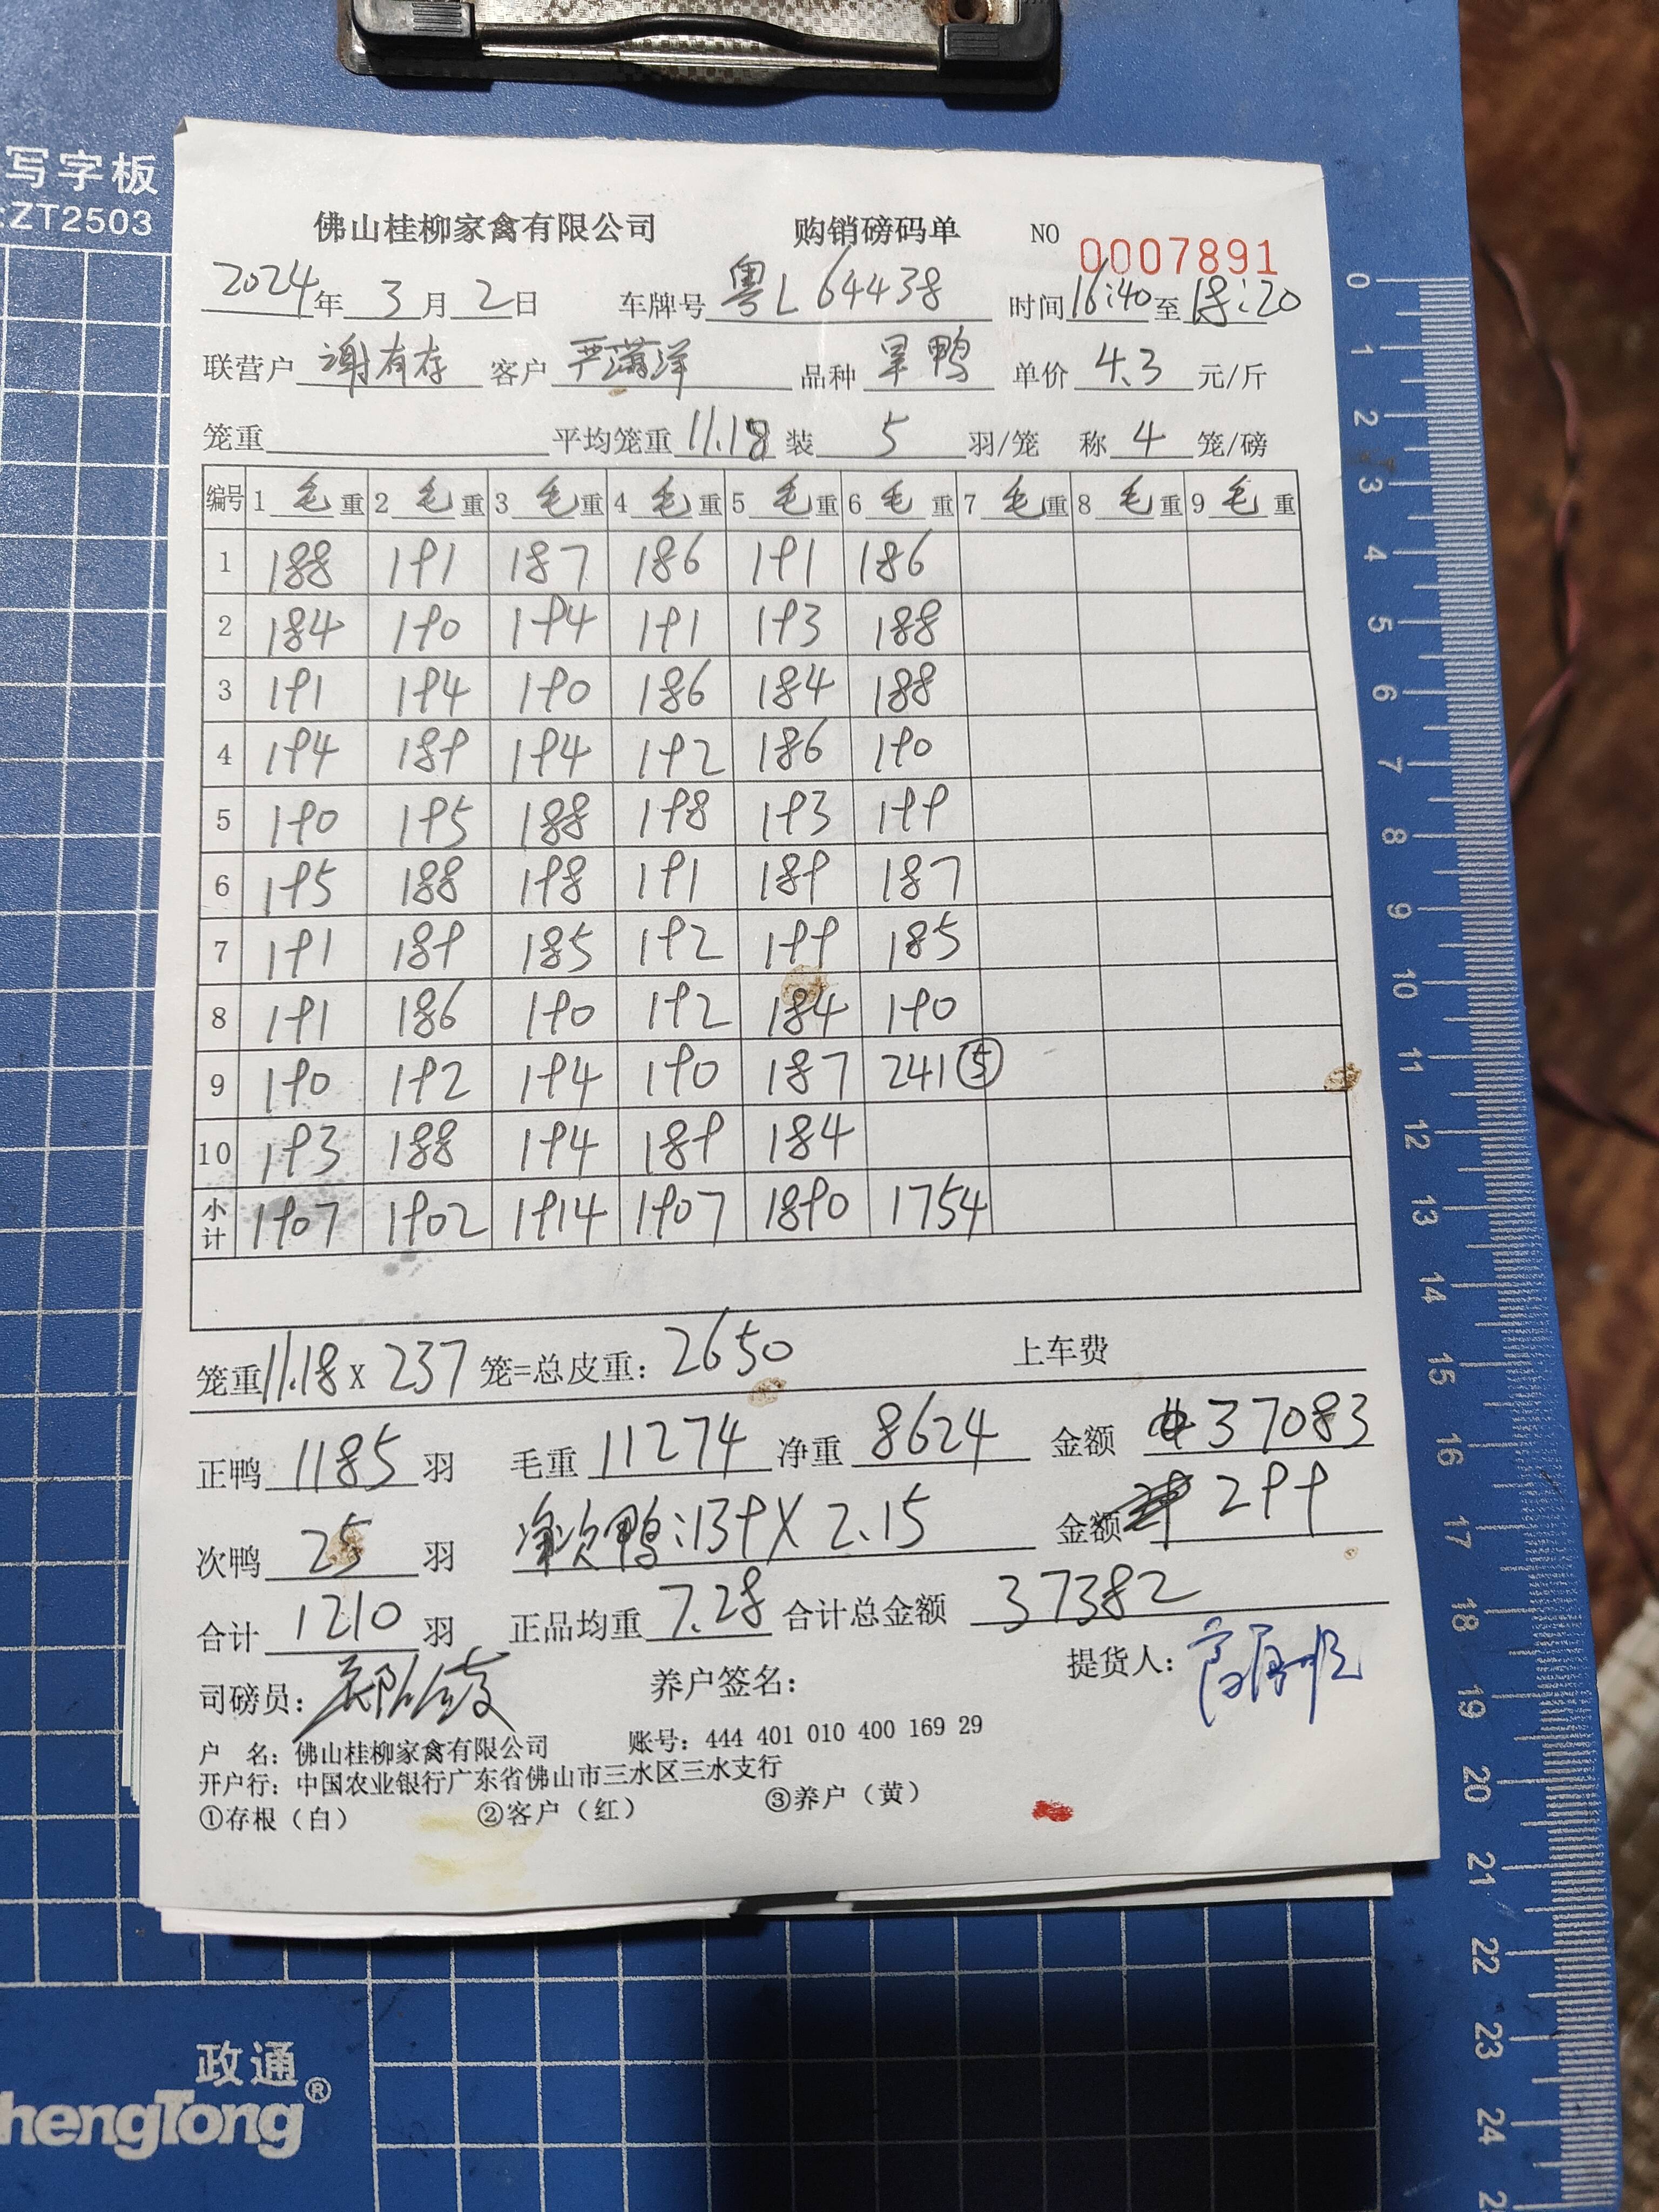 写字板
:ZT2503
佛山桂柳家禽有限公司 购销磅码单 NO 0007891
2024年 3月2日 车牌号 粤L 64438 时间16:40至18:20
联营户 谢有存 客户 严潇洋 品种 旱鸭 单价 4.3 元/斤
笼重 平均笼重 11.18 装 5 羽/笼 称 4 笼/磅
编号 1 毛 重 2 毛 重 3 毛 重 4 毛 重 5 毛 重 6 毛 重 7 毛 重 8 毛 重 9 毛 重
1 188 191 187 186 191 186
2 184 190 194 191 193 188
3 191 194 190 186 184 188
4 194 189 194 192 186 190
5 190 195 188 198 193 199
6 195 188 198 191 189 187
7 191 189 185 192 199 185
8 191 186 190 192 184 190
9 190 192 194 190 187 241⑤
10 193 188 194 189 184
小计 1907 1902 1914 1907 1890 1754
笼重11.18 x 237 笼=总皮重: 2650 上车费
正鸭 1185 羽 毛重 11274 净重 8624 金额 37083
次鸭 25 羽 次鸭:139X2.15 金额 299
合计 1210 羽 正品均重 7.28 合计总金额 37382
司磅员: 养户签名: 提货人:
户 名: 佛山桂柳家禽有限公司 账号: 444 401 010 400 169 29
开户行: 中国农业银行广东省佛山市三水区三水支行
①存根（白） ②客户（红） ③养户（黄）
政通®
hengTong
0
1
2
3
4
5
6
7
8
9
10
11
12
13
14
15
16
17
18
19
20
21
22
23
24